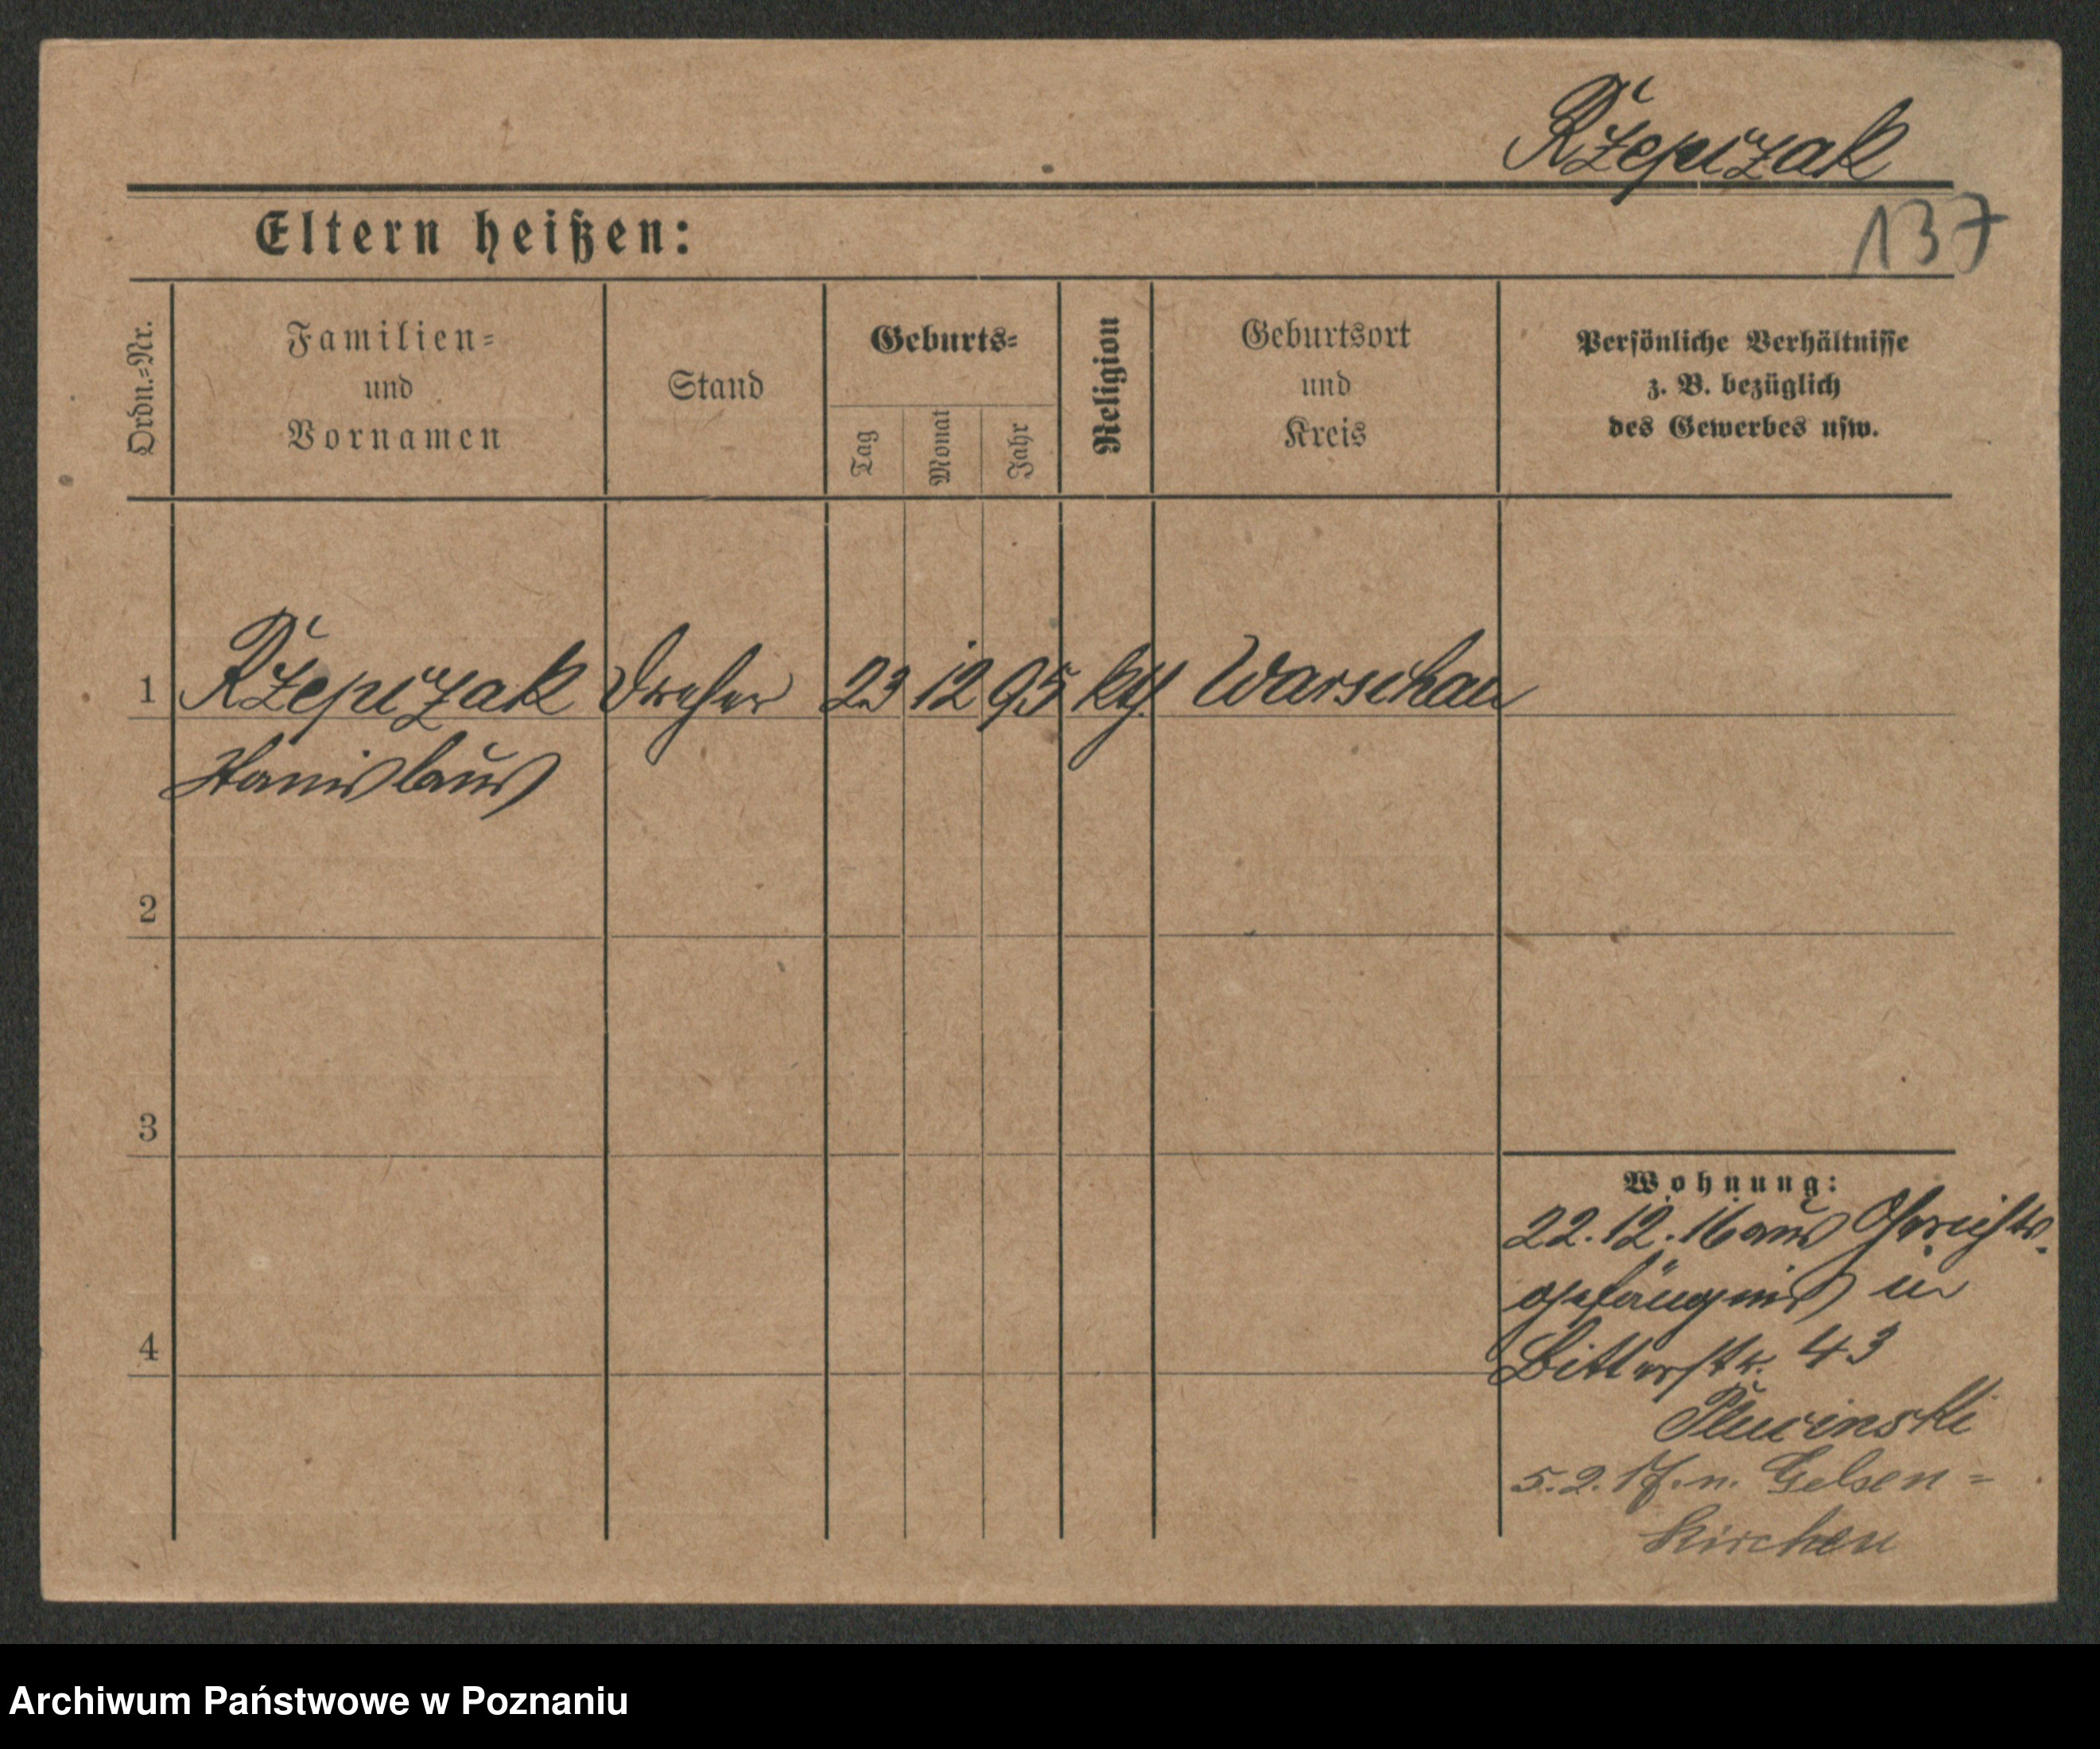 Rzepczak
137
Eltern heißen:
Ordn.=Nr.
Familien=
und
Vornamen
Stand
Geburts=
Tag
Monat
Jahr
Religion
Geburtsort
und
Kreis
Persönliche Verhältnisse
z. B. bezüglich
des Gewerbes usw.
1 Rzepczak Dreher 23 12 95 kth. Warschau
Stanislaus
2
3
4
Wohnung:
22.12.16 aus Gerichts-
gefängnis in
Bitterstr. 43
5.2.17. n. Gelsen=
kirchen
Archiwum Państwowe w Poznaniu